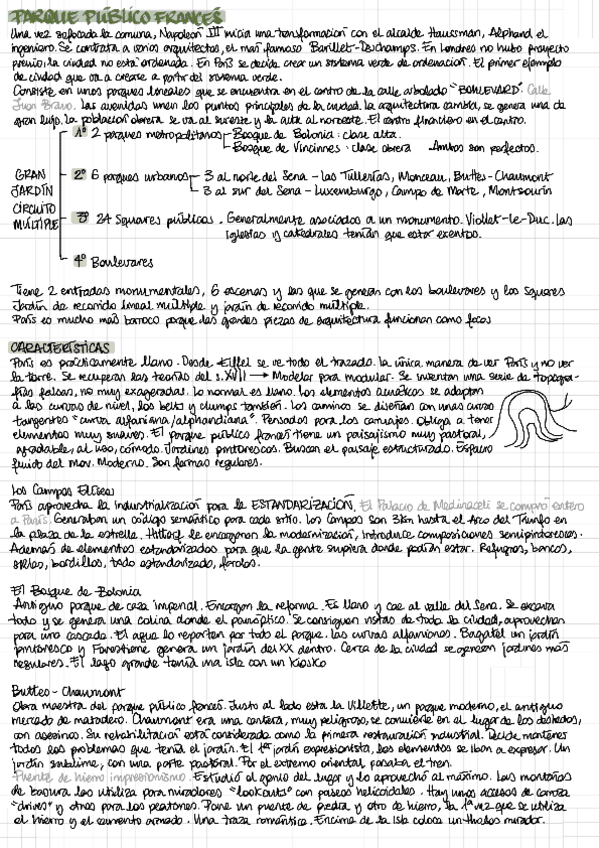 PARQUE PÚBLICO FRANCÉS
Una vez sofocada la comuna, Napoleón III inicia una transformación con el alcalde Haussman, Alphand el
ingeniero. Se contrata a varios arquitectos, el más famoso Barillet-Deschamps. En Londres no hubo proyecto
previo, la ciudad no está ordenada. En París se decide crear un sistema verde de ordenación. El primer ejemplo
de ciudad que va a crearse a partir del sistema verde.
Consiste en unos parques lineales que se encuentra en el centro de la calle arbolado "BOULEVARD". Calle
Juan Bravo. Las avenidas unen los puntos principales de la ciudad. La arquitectura cambia, se genera una de
gran lujo. La población obrera se va al sureste y la alta al noroeste. El centro financiero en el centro.
1º 2 parques metropolitanos Bosque de Bolonia: clase alta.
Bosque de Vincinnes: clase obrera Ambos son perfectos.
GRAN JARDÍN CIRCUITO MÚLTIPLE
2º 6 parques urbanos 3 al norte del Sena - Las Tullerías, Monceau, Buttes-Chaumont
3 al sur del Sena - Luxemburgo, Campo de Marte, Montsourin
3º 24 Squares públicos. Generalmente asociados a un monumento. Viollet-le-Duc. Las
iglesias y catedrales tenían que estar exentas.
4º Boulevares
Tiene 2 entradas monumentales, 6 escenas y las que se generan con los boulevares y los squares
Jardín de recorrido lineal múltiple y jardín de recorrido múltiple.
París es mucho más barroco porque las grandes piezas de arquitectura funcionan como focos
CARACTERÍSTICAS
París es prácticamente llano. Desde Eiffel se ve todo el trazado. La única manera de ver París y no ver
la torre. Se recuperan las teorías del s. XVII → Modelar para modular. Se inventan una serie de topogra-
fías falsas, no muy exageradas. Lo normal es llano. Los elementos acuáticos se adaptan
a las curvas de nivel, los belts y clumps también. Los caminos se diseñan con unas curvas
tangentes "curva alfaniana/alphandiana". Pensados para los carruajes. Obliga a tener
elementos muy suaves. El parque público francés tiene un paisajismo muy pastoral,
agradable, al uso, cómodo. Jardines pintorescos. Buscan el paisaje estructurado. Espacio
fluido del mov. Moderno. Son formas regulares.
Los Campos Elíseos
París aprovecha la industrialización para la ESTANDARIZACIÓN. El Palacio de Medinaceli se compró entero
a París. Generaban un código semántico para cada sitio. Los campos son 3km hasta el Arco del Triunfo en
la plaza de la estrella. Hittorf le encargan la modernización, introduce composiciones semipintorescas.
Además de elementos estandarizados para que la gente supiera donde podían estar. Refugios, bancos,
sillas, bordillos, todo estandarizado, farolas.
El Bosque de Bolonia
Antiguo parque de caza imperial. Encargan la reforma. Es llano y cae al valle del Sena. Se excava
todo y se genera una colina donde el panóptico. Se consiguen vistas de toda la ciudad, aprovechan
para una cascada. El agua lo reparten por todo el parque. Las curvas alfanianas. Bagatel un jardín
pintoresco y Forestiene genera un jardín del XX dentro. Cerca de la ciudad se generan jardines más
regulares. El lago grande tenía una isla con un kiosko
Buttes-Chaumont
Obra maestra del parque público francés. Justo al lado esta la Villette, un parque moderno, el antiguo
mercado de matadero. Chaumont era una cantera, muy peligroso, se convierte en el lugar de los dados,
con asesinos. Su rehabilitación está considerada como la primera restauración industrial. Decide mantener
todos los problemas que tenía el jardín. El 1er jardín expresionista, los elementos se iban a expresar. Un
jardín sublime, con una parte pastoral. Por el extremo oriental pasaba el tren.
Puente de hierro impresionismo. Estudió el genio del lugar y lo aprovechó al máximo. Las montañas
de basura las utiliza para miradores "lookouts" con paseos helicoidales. Hay unos accesos de carroza
"drives" y otros para los peatones. Pone un puente de piedra y otro de hierro, la 1ª vez que se utiliza
el hierro y el cemento armado. Una traza romántica. Encima de la isla coloca un tholos mirador.